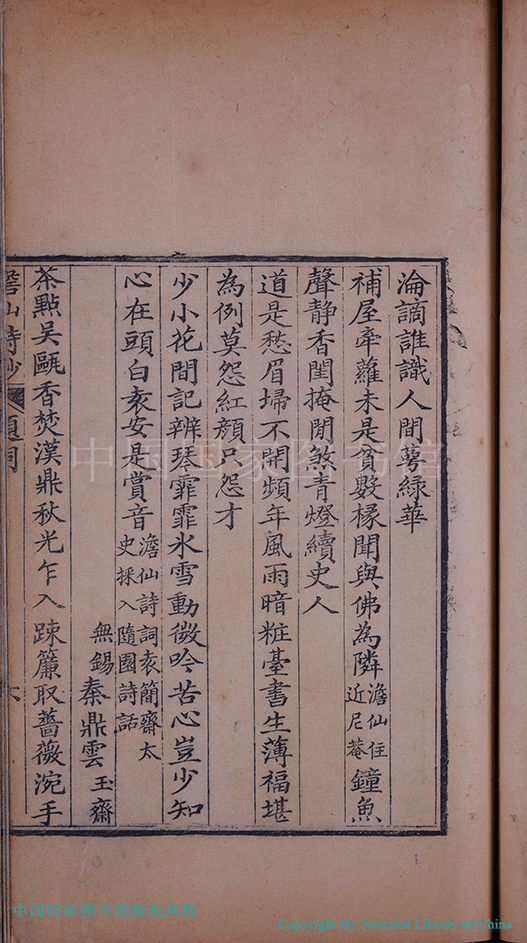 淪謫誰識人間萼緑華
補屋牽蘿未是貧數椽聞與佛為隣澹仙住近尼菴鐘魚
聲静香閨掩閒煞青燈續史人
道是愁眉埽不開頻年風雨暗粧臺書生薄福堪
為例莫怨紅顔只怨才
少小花間記辨琴霏霏氷雪動微吟苦心豈少知
心在頭白袁安是賞音澹仙詩詞袁簡齋太史採入隨園詩話
無錫秦鼎雲玉齋
茶㸃吳甌香焚漢鼎秋光乍入踈簾取薔薇浣手
澹仙詩鈔 題詞
中国国家图书馆
中国国家图书馆版权所有
Copyright By National Library of China